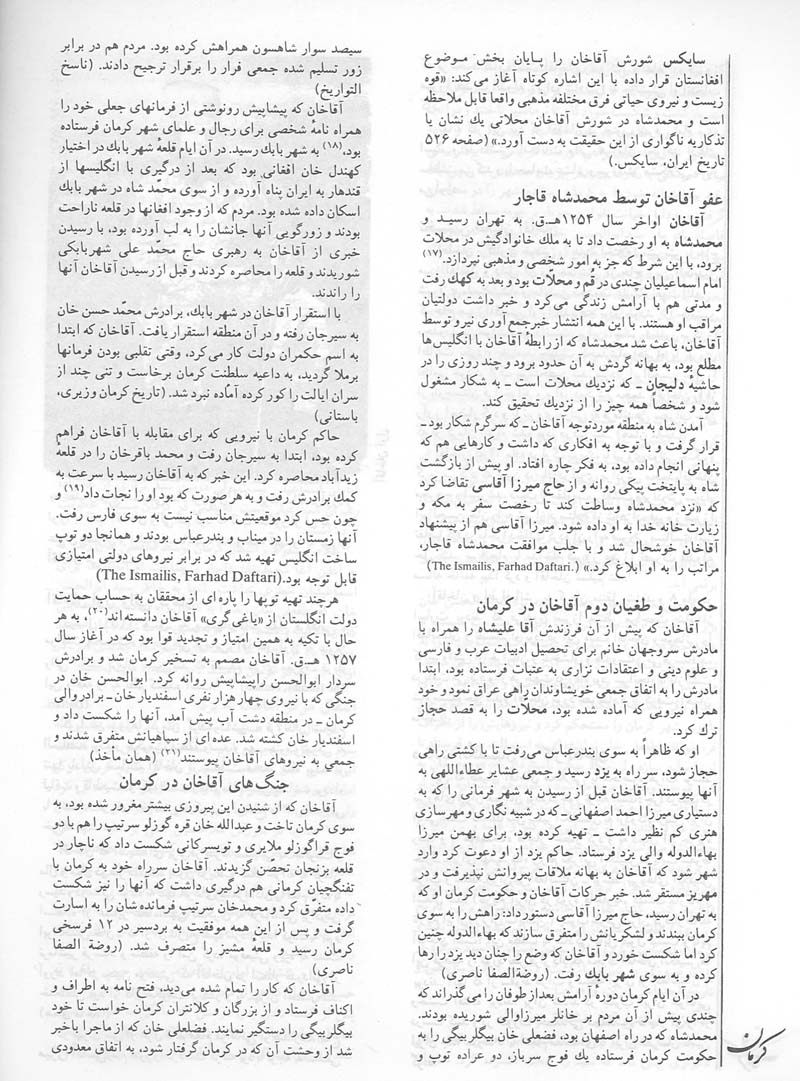 سایکس شورش آقاخان را پایان بخش موضوع
افغانستان قرار داده با این اشاره کوتاه آغاز می‌کند: «قوه
زیست و نیروی حیاتی فرق مختلفه مذهبی واقعا قابل ملاحظه
است و محمدشاه در شورش آقاخان محلاتی یك نشان یا
تذکاریه ناگواری از این حقیقت به دست آورد.» (صفحه ۵۲۶
تاریخ ایران، سایکس.)
عفو آقاخان توسط محمدشاه قاجار
آقاخان اواخر سال ۱۲۵۴هـ.ق. به تهران رسید و
محمدشاه به او رخصت داد تا به ملك خانوادگیش در محلات
برود، با این شرط که جز به امور شخصی و مذهبی نپردازد.(۱۷)
امام اسماعیلیان چندی در قُم و محلّات بود و بعد به کهك رفت
و مدتی هم با آرامش زندگی می‌کرد و خبر داشت دولتیان
مراقب او هستند. با این همه انتشار خبر جمع آوری نیرو توسط
آقاخان، باعث شد محمدشاه که از رابطهٔ آقاخان با انگلیس‌ها
مطلع بود، به بهانه گردش به آن حدود برود و چند روزی را در
حاشیهٔ دلیجان ـ که نزدیك محلات است ـ به شکار مشغول
شود و شخصاً همه چیز را از نزدیك تحقیق کند.
آمدن شاه به منطقه مورد توجه آقاخان ـ که سرگرم شکار بود ـ
قرار گرفت و با توجه به افکاری که داشت و کارهایی هم که
پنهانی انجام داده بود، به فکر چاره افتاد. او پیش از بازگشت
شاه به پایتخت پیکی روانه و از حاج میرزا آقاسی تقاضا کرد
که «نزد محمدشاه وساطت کند تا رخصت سفر به مکه و
زیارت خانه خدا به او داده شود. میرزا آقاسی هم از پیشنهاد
آقاخان خوشحال شد و با جلب موافقت محمدشاه قاجار،
مراتب را به او ابلاغ کرد.» (The Ismailis, Farhad Daftari.)
حکومت و طغیان دوم آقاخان در کرمان
آقاخان که پیش از آن فرزندش آقا علیشاه را همراه با
مادرش سروجهان خانم برای تحصیل ادبیات عرب و فارسی
و علوم دینی و اعتقادات نزاری به عتبات فرستاده بود، ابتدا
مادرش را به اتفاق جمعی خویشاوندان راهی عراق نمود و خود
همراه نیرویی که آماده شده بود، محلّات را به قصد حجاز
ترك کرد.
او که ظاهراً به سوی بندرعباس می‌رفت تا با کشتی راهی
حجاز شود، سر راه به یزد رسید و جمعی عشایر عطاءاللهی به
آنها پیوستند. آقاخان قبل از رسیدن به شهر فرمانی را که به
دستیاری میرزا احمد اصفهانی ـ که در شبیه نگاری و مهرسازی
هنری کم نظیر داشت ـ تهیه کرده بود، برای بهمن میرزا
بهاءالدوله والی یزد فرستاد. حاکم یزد از او دعوت کرد وارد
شهر شود که آقاخان به بهانه ملاقات پیروانش نپذیرفت و در
مهریز مستقر شد. خبر حرکات آقاخان و حکومت کرمان او که
به تهران رسید، حاج میرزا آقاسی دستور داد: راهش را به سوی
کرمان ببندند و لشکریانش را متفرق سازند که بهاءالدوله چنین
کرد اما شکست خورد و آقاخان که وضع را چنان دید یزد را رها
کرده و به سوی شهر بابك رفت. (روضةالصفا ناصری)
در آن ایام کرمان دورهٔ آرامش بعد از طوفان را می‌گذراند که
چندی پیش از آن مردم بر خانلر میرزا والی شوریده بودند.
محمدشاه که در راه اصفهان بود، فضعلی خان بیگلربیگی را به
حکومت کرمان فرستاده یك فوج سرباز، دو عراده توپ و
سیصد سوار شاهسون همراهش کرده بود. مردم هم در برابر
زور تسلیم شده جمعی فرار را برقرار ترجیح دادند. (ناسخ
التواریخ)
آقاخان که پیشاپیش رونوشتی از فرمانهای جعلی خود را
همراه نامهٔ شخصی برای رجال و علمای شهر کرمان فرستاده
بود،(۱۸) به شهر بابك رسید. در آن ایام قلعهٔ شهر بابك در اختیار
کهندل خان افغانی بود که بعد از درگیری با انگلیسها از
قندهار به ایران پناه آورده و از سوی محمّد شاه در شهر بابك
اسکان داده شده بود. مردم که از وجود افغانها در قلعه ناراحت
بودند و زورگویی آنها جانشان را به لب آورده بود، با رسیدن
خبری از آقاخان به رهبری حاج محمّد علی شهربابکی
شوریدند و قلعه را محاصره کردند و قبل از رسیدن آقاخان آنها
را راندند.
با استقرار آقاخان در شهر بابك، برادرش محمّد حسن خان
به سیرجان رفته و در آن منطقه استقرار یافت. آقاخان که ابتدا
به اسم حکمران دولت کار می‌کرد، وقتی تقلبی بودن فرمانها
برملا گردید، به داعیه سلطنت کرمان برخاست و تنی چند از
سران ایالت را کور کرده آماده نبرد شد. (تاریخ کرمان وزیری،
باستانی)
حاکم کرمان با نیرویی که برای مقابله با آقاخان فراهم
کرده بود، ابتدا به سیرجان رفت و محمد باقرخان را در قلعهٔ
زیدآباد محاصره کرد. این خبر که به آقاخان رسید با سرعت به
کمك برادرش رفت و به هر صورت که بود او را نجات داد(۱۹) و
چون حس کرد موقعیتش مناسب نیست به سوی فارس رفت.
آنها زمستان را در میناب و بندرعباس بودند و همانجا دو توپ
ساخت انگلیس تهیه شد که در برابر نیروهای دولتی امتیازی
قابل توجه بود.(The Ismailis, Farhad Daftari)
هرچند تهیه توپها را پاره ای از محققان به حساب حمایت
دولت انگلستان از «یاغی گری» آقاخان دانسته اند(۲۰)، به هر
حال با تکیه به همین امتیاز و تجدید قوا بود که در آغاز سال
۱۲۵۷ هـ.ق. آقاخان مصمم به تسخیر کرمان شد و برادرش
سردار ابوالحسن را پیشاپیش روانه کرد. ابوالحسن خان در
جنگی که با نیروی چهار هزار نفری اسفندیار خان ـ برادر والی
کرمان ـ در منطقه دشت آب پیش آمد، آنها را شکست داد و
اسفندیار خان کشته شد. عده ای از سپاهیانش متفرق شدند و
جمعی به نیروهای آقاخان پیوستند(۲۱) (همان مأخذ)
جنگ‌های آقاخان در کرمان
آقاخان که از شنیدن این پیروزی بیشتر مغرور شده بود، به
سوی کرمان تاخت و عبدالله خان قره گوزلو سرتیپ را هم با دو
فوج قراگوزلو ملایری و تویسرکانی شکست داد که ناچار در
قلعه بزنجان تحصّن گزیدند. آقاخان سرراه خود به کرمان با
تفنگچیان کرمانی هم درگیری داشت که آنها را نیز شکست
داده متفرّق کرد و محمدخان سرتیپ فرمانده شان را به اسارت
گرفت و پس از این همه موفقیت به بردسیر در ۱۲ فرسخی
کرمان رسید و قلعهٔ مشیز را متصرف شد. (روضة الصفا
ناصری)
آقاخان که کار را تمام شده می‌دید، فتح نامه به اطراف و
اکناف فرستاد و از بزرگان و کلانتران کرمان خواست تا خود
بیگلربیگی را دستگیر نمایند. فضلعلی خان که از ماجرا باخبر
شد از وحشت آن که در کرمان گرفتار شود، به اتفاق معدودی
کرمان